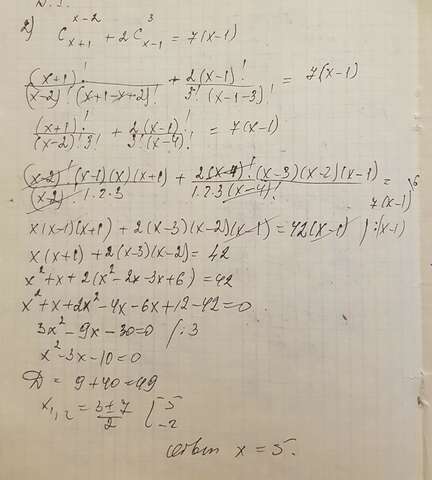 2) C_{x+1}^{x-2} + 2C_{x-1}^{3} = 7(x-1)
(x+1)! / (x-2)!(x+1-x+2)! + 2(x-1)! / 3!(x-1-3)! = 7(x-1)
(x+1)! / (x-2)!3! + 2(x-1)! / 3!(x-4)! = 7(x-1)
(x-2)!(x-1)(x)(x+1) / (x-2)! 1.2.3 + 2(x-4)!(x-3)(x-2)(x-1) / 1.2.3(x-4)! = 7(x-1) \6
x(x-1)(x+1) + 2(x-3)(x-2)(x-1) = 42(x-1) /:(x-1)
x(x+1) + 2(x-3)(x-2) = 42
x² + x + 2(x² - 2x - 3x + 6) = 42
x² + x + 2x² - 4x - 6x + 12 - 42 = 0
3x² - 9x - 30 = 0 /:3
x² - 3x - 10 = 0
D = 9 + 40 = 49
x_{1,2} = 3±7 / 2 [ 5 -2
x = 5.